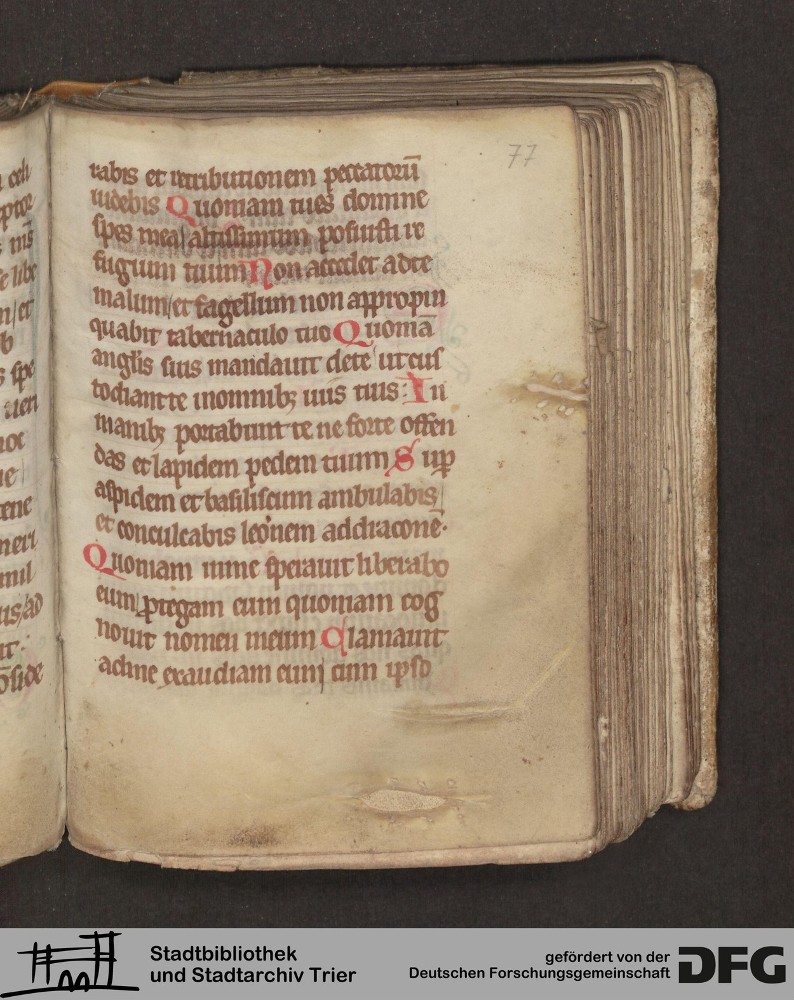 77
rabis et retributionem peccatorū
uidebis Quoniam tu es domine
spes mea altissimum posuisti re
fugium tuum Non accedet ad te
malum et flagellum non appropin
quabit tabernaculo tuo Quoniā
anglis suis mandauit de te ut cus
todiant te in omnibꝫ uiis tuis In
manibꝫ portabunt te ne forte offen
das et lapidem pedem tuum Suꝑ
aspidem et basiliscum ambulabis
et conculcabis leonem ad dracone
Quoniam in me sperauit liberabo
eum ꝓtegam eum quoniam cog
nouit nomen meum Clamauit
ad me exaudiam eum cum ipso
Stadtbibliothek
und Stadtarchiv Trier
gefördert von der
Deutschen Forschungsgemeinschaft
DFG